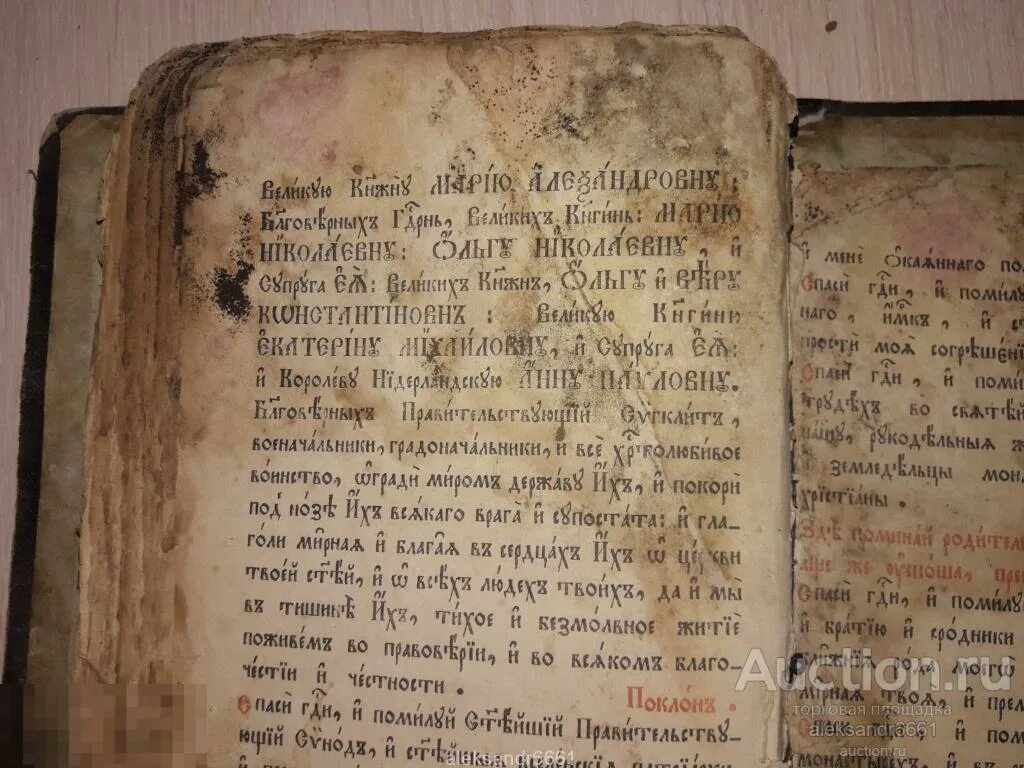 Вели́кꙋю Кнѧжнꙋ̀ МАРІ́Ю А҆ЛЕѮА́НДРОВНꙋ:
Бл҃гові́рныхъ Гдⷭ҇рнь, Вели́кихъ Кнѧги́нь: МАРІ́Ю
НІКОЛА́ЕВНꙋ: Ѻ҆́ЛЬГꙋ НІКОЛА́ЕВНꙋ, и҆
Сꙋпрꙋ́га Є҆Ѧ̀: Вели́кихъ Кнѧже́нъ, Ѻ҆́ЛЬГꙋ и҆ ВѢ́Рꙋ
КѠНСТАНТІ́НОВНЪ: Вели́кꙋю Кнѧги́ню
Є҆КАТЕРІ́Нꙋ МІХА́ИЛОВНꙋ, и҆ Сꙋпрꙋ́га Є҆Ѧ̀:
и҆ Короле́вꙋ Нідерла́ндскꙋю А҆́ННꙋ ПА́ѴЛОВНꙋ.
Бл҃говѣ́рныхъ Прави́тельствꙋющій Сѷгкли́тъ,
военача́льники, градонача́льники, и҆ всѐ хрⷭ҇толюби́вое
во́инство, ѡ҆градѝ ми́ромъ держа́вꙋ И҆́хъ, и҆ покорѝ
под̾ но́зѣ И҆́хъ всѧ́каго врага̀ и҆ сꙋпоста́та: и҆ гла-
го́ли ми̑рнаѧ и҆ блага̑ѧ въ сердца́хъ И҆́хъ ѡ҆ це́ркви
твое́й ст҃ѣ́й, и҆ ѡ҆ всѣ́хъ лю́дехъ твои́хъ, да и҆ мы̀
въ тишинѣ̀ И҆́хъ, ти́хое и҆ безмо́лвное житіѐ
поживе́мъ во правовѣ́ріи, и҆ во всѧ́комъ благо-
че́стіи и҆ че́стности.
Покло́нъ.
Спасѝ гдⷭ҇и, и҆ поми́лꙋй Ст҃ѣ́йшій Прави́тельствꙋ-
ющій Сѷно́дъ, и҆ ст҃ѣ́йшиѧ
и҆ менѐ ѻ҆каѧ́ннаго
Спасѝ гдⷭ҇и, и҆ поми́лꙋ
наго, и҆́мкъ, и҆
прости моѧ̑ согрѣшє́нї
Спасѝ гдⷭ҇и, и҆ поми́
трꙋдѣ́хъ во свѧтѣ́й
на́шꙋ, рꙋкодѣ́льныѧ
и҆ земледѣ́льцы мона
хрїстїа́ны.
Здѣ̀ помина́й роди́тел
а҆́ще же ᲂу҆сопо́ша, пре
Спасѝ гдⷭ҇и, и҆ поми́лꙋ
и҆ бра́тію и҆ сро́дники
бли̑жніѧ ро́да моегѡ̀
ми̑рнаѧ твоѧ̑, и҆ пре
Спасѝ гдⷭ҇и, и҆ пом
монастырехъ и҆ въ п
Auction.ru
торговая площадка
aleksandr6661
auction.ru
aleksandr6661